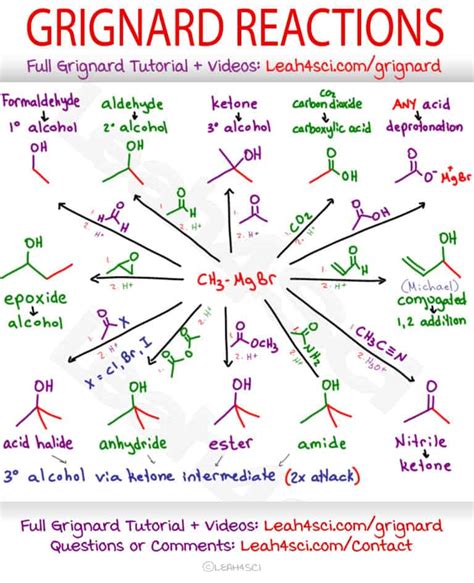 GRIGNARD REACTIONS
Full Grignard Tutorial + Videos: Leah4sci.com/grignard
Formaldehyde
1° alcohol
aldehyde
2° alcohol
ketone
3° alcohol
CO2
carbon dioxide
carboxylic acid
ANY acid
deprotonation
OH
OH
OH
O
OH
O
O⁻ ⁺MgBr
1. H H O
2. H⁺
1. O H
2. H⁺
1. O
2. H⁺
1. CO2
2. H⁺
O
OH
OH
epoxide
alcohol
1. O
2. H⁺
CH3-MgBr
1. O H
2. H⁺
OH
(Michael)
conjugated
1,2 addition
O
X
X = Cl, Br, I
O O O
2. H⁺
O
OCH3
2. H⁺
O
NH2
CH3C≡N
2. H3O⁺
OH
acid halide
OH
anhydride
OH
ester
OH
amide
O
Nitrile
ketone
3° alcohol via ketone intermediate (2x attack)
Full Grignard Tutorial + Videos: Leah4sci.com/grignard
Questions or Comments: Leah4sci.com/Contact
©LEAH4SCI